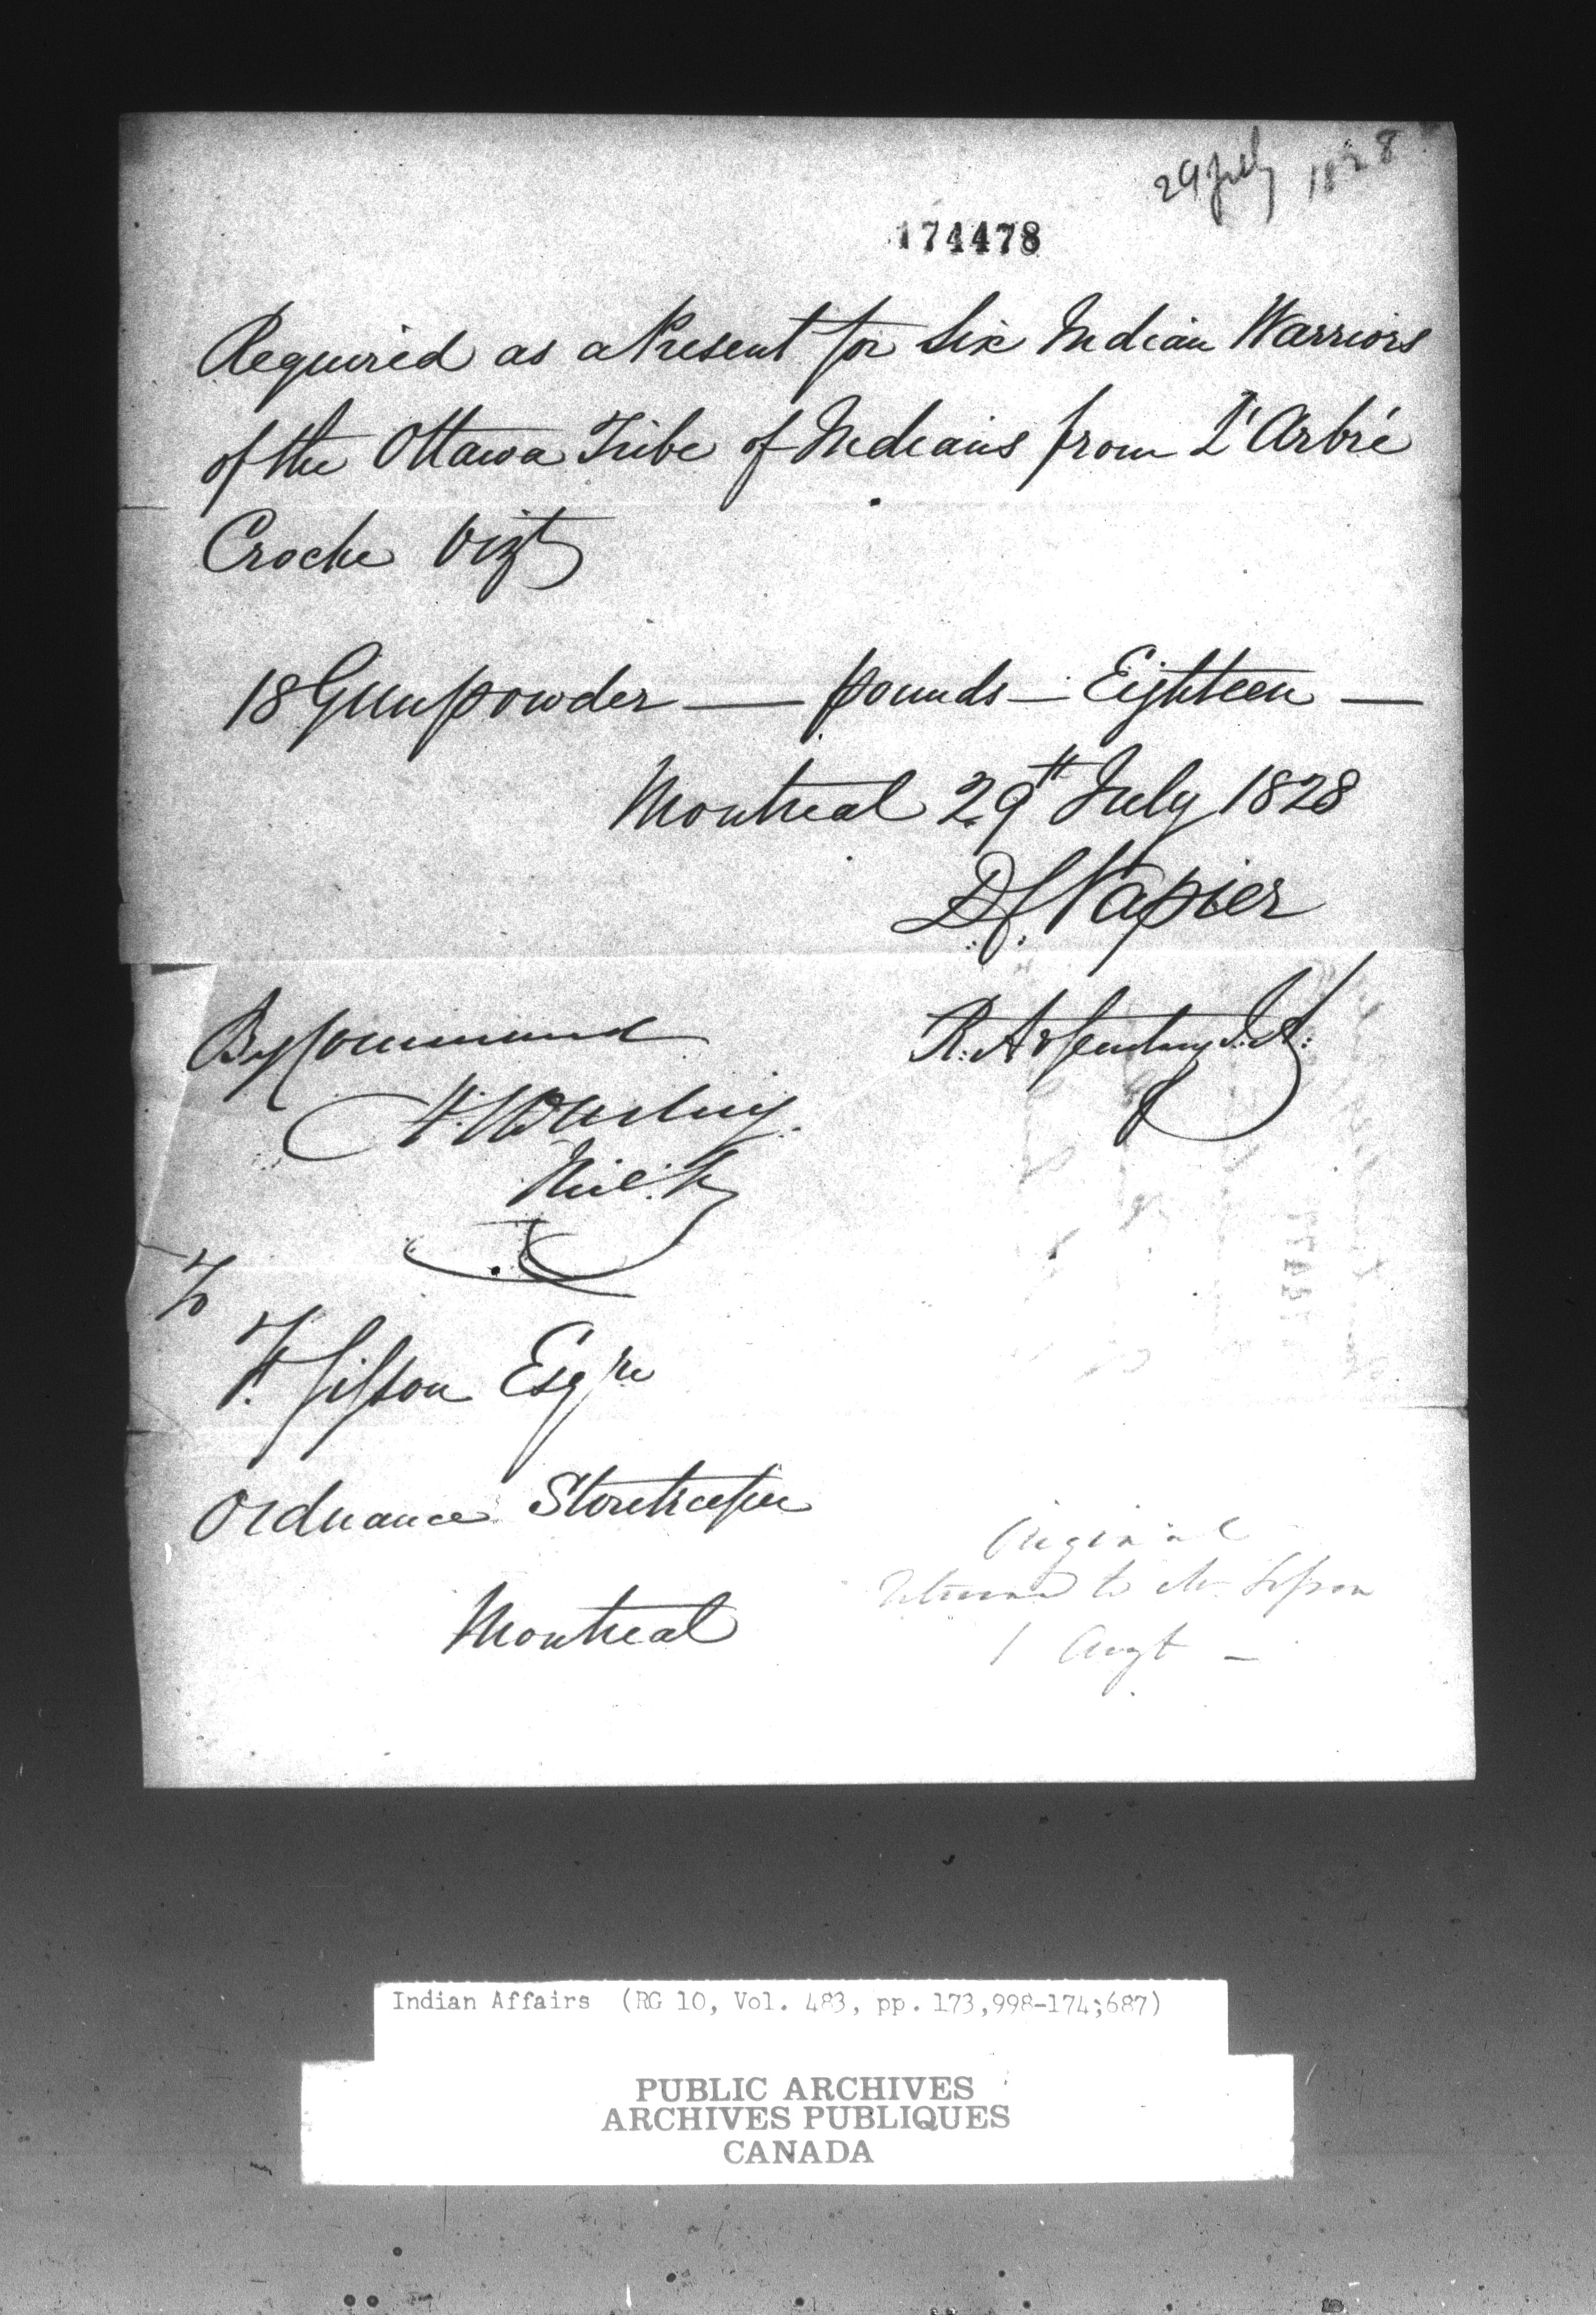 29 July 1828
174478
Required as a Present for Six Indian Warriors
of the Ottawa Tribe of Indians from L'Arbré
Croche Vizt
18 Gunpowder — pounds — Eighteen —
Montreal 29th July 1828
D. C. Napier
By Command
R. Ag Secretary I. A.
H. C. Darling
Mil. Sy
To
F. Gibson Esqre
Ordnance Storekeeper
Montreal
Original
returned to Mr
1 Augt —
Indian Affairs (RG 10, Vol. 483, pp. 173,998-174;687)
PUBLIC ARCHIVES
ARCHIVES PUBLIQUES
CANADA